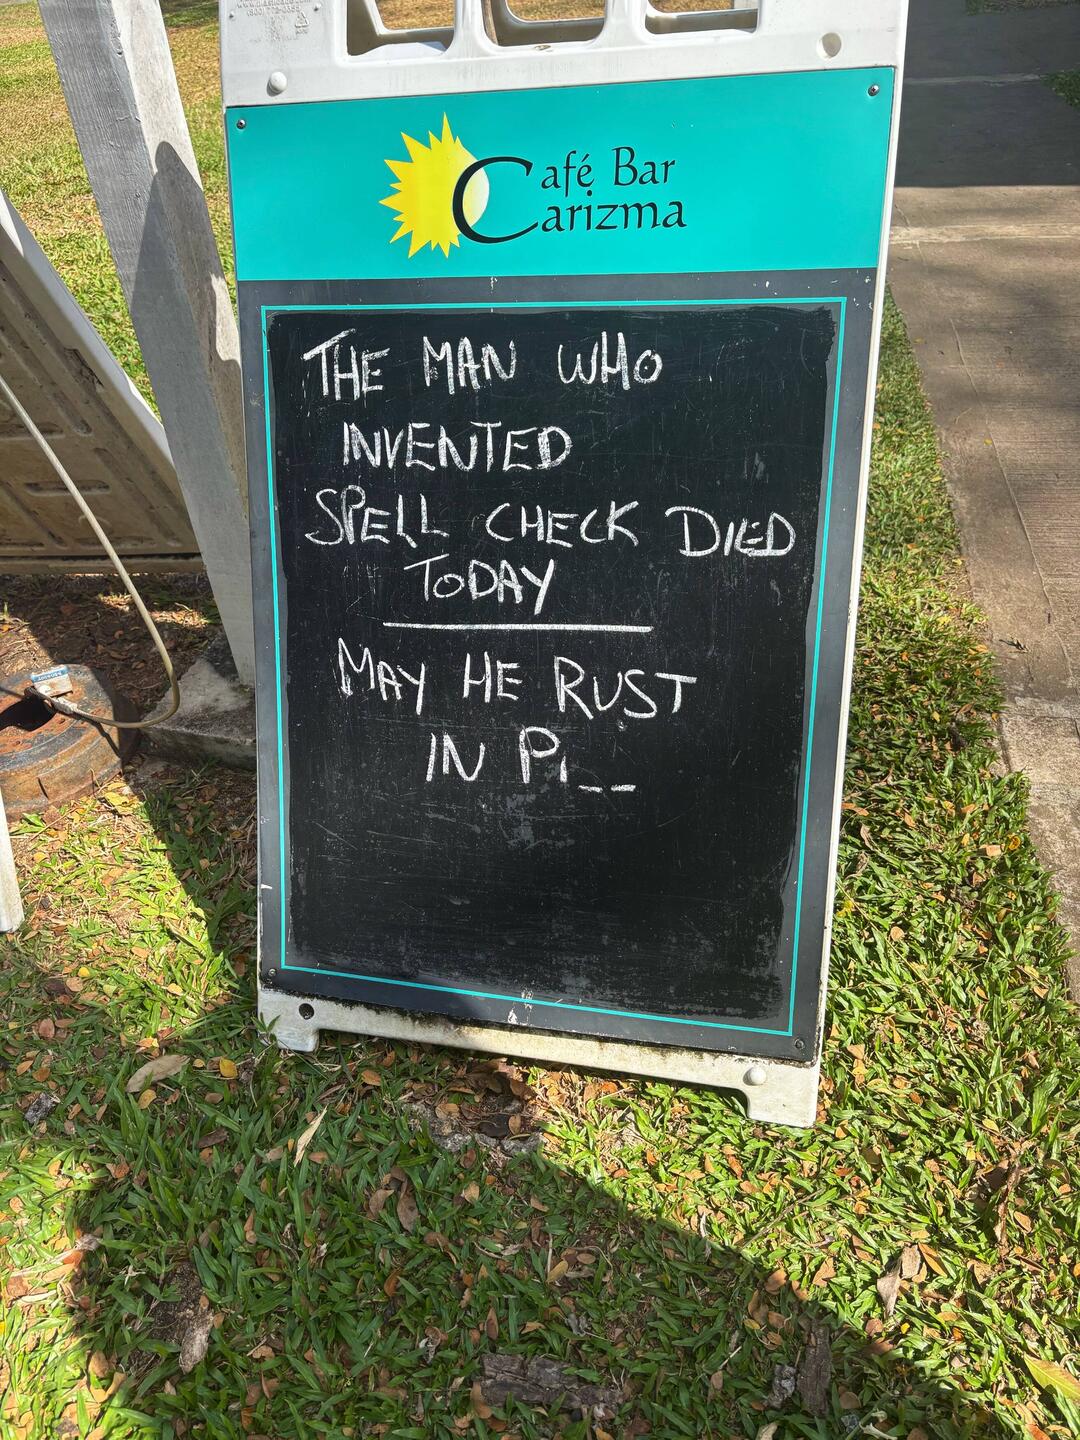 Café Bar
Carizma
THE MAN WHO
INVENTED
SPELL CHECK DIED
TODAY
MAY HE RUST
IN Pi__